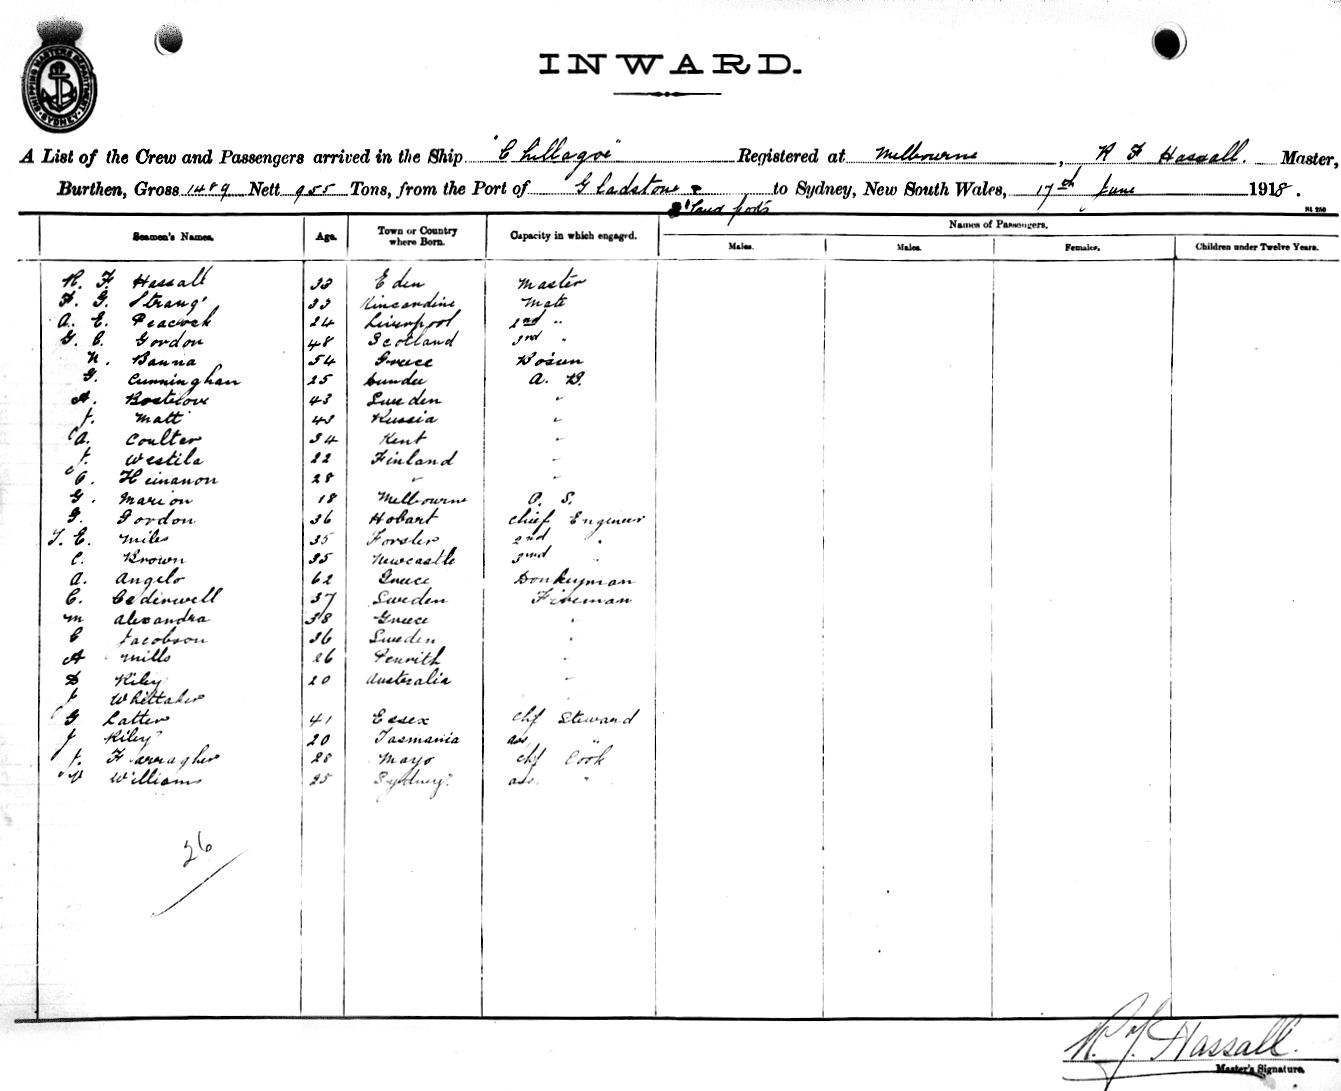 SHIPPING MASTERS DEPARTMENT SYDNEY
INWARD.
A List of the Crew and Passengers arrived in the Ship "Chillagoe" Registered at Melbourne, R F Hassall. Master,
Burthen, Gross 1489 Nett 955 Tons, from the Port of Gladstone & to Sydney, New South Wales, 17th June 1918.
Names of Passengers.
Seamen's Names. Age. Town or Country where Born. Capacity in which engaged. Males. Males. Females. Children under Twelve Years.
R. F. Hassall 33 Eden Master
G. Strang 33 Kincardine Mate
A. E. Peacock 24 Liverpool 2nd "
G. C. Gordon 48 Scotland 3rd "
N. Banna 54 Greece Bosun
G. Cunninghan 25 Dundee A. B.
A. 43 Sweden "
J. Matt 43 Russia "
A. Coulter 34 Kent "
J. Westila 22 Finland "
Heinanon 28 " "
G. Marion 18 Melbourne O. S.
G. Gordon 36 Hobart Chief Engineer
T. E. Miles 35 Forster 2nd "
C. Brown 35 Newcastle 3rd "
A. Angelo 62 Greece Donkeyman
C. Cederwell 37 Sweden Fireman
M Alexandra 38 Greece "
C Jacobson 36 Sweden "
A Mills 26 Penrith "
D Riley 20 Australia "
J Whittaker
G Latter 41 Essex Chf Steward
J Riley 20 Tasmania ass. "
J. Farragher 28 Mayo Chf Cook
Williams 25 Sydney ass. "
26
R. F. Hassall.
Master's Signature.